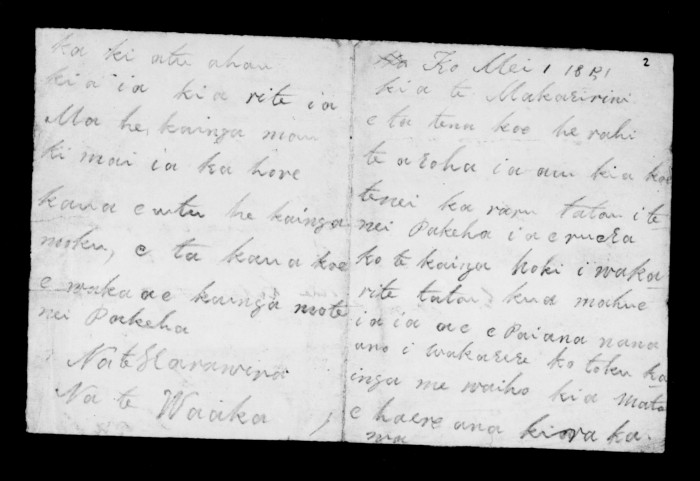 2
Ko Mei 1 1851
kia te Makarini
e ta tena koe he rahi
te aroha ia au kia koe
tenei ka raru tatou i te
nei Pakeha ia eruera
ko te kainga hoki i waka
rite tatou kua mahue
ia ia ae e Paiana nana
ano i wakarere ko toku ka
inga me waiho kia mato
e haere ana kiora ka
ma
ka ki atu ahau
ki a ia kia rite ia
Ma he kainga mau
ki mai ia ka hore
kaua e utu he kainga
nooku, e ta kaua koe
e waka ae kainga mote
nei Pakeha
Na te Harawira
Na te Waaka